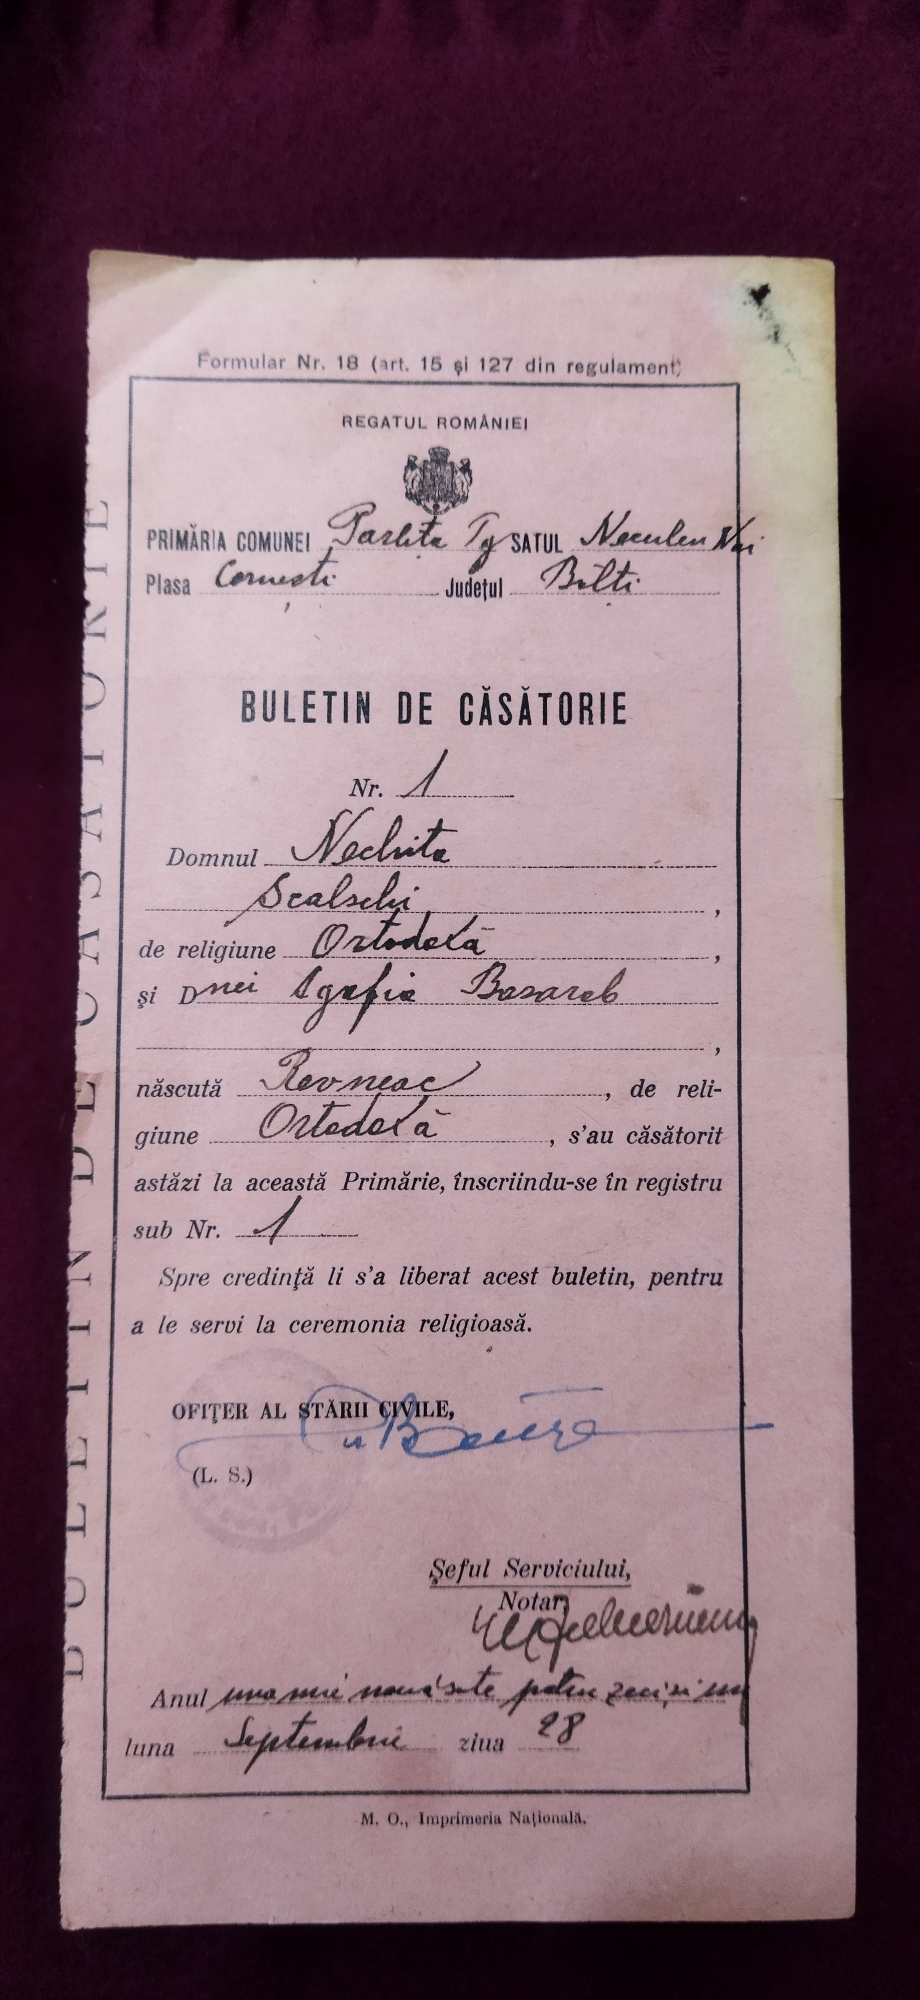 Formular Nr. 18 (art. 15 și 127 din regulament)
REGATUL ROMÂNIEI
PRIMĂRIA COMUNEI Parlita Tg SATUL Neculeu Noi
Plasa Cornești Județul Bălti
BULETIN DE CĂSĂTORIE
Nr. 1
Domnul Nechita
Scalschi,
de religiune Ortodoxă,
și Dnei Agafia Basarab
,
născută Revneac, de reli-
giune Ortodoxă, s'au căsătorit
astăzi la această Primărie, înscriindu-se în registru
sub Nr. 1
Spre credință li s'a liberat acest buletin, pentru
a le servi la ceremonia religioasă.
OFIȚER AL STĂRII CIVILE,
(L. S.)
Șeful Serviciului,
Notar,
Anul una mie nouă sute patru zeci si unu
luna Septembrie ziua 28
M. O., Imprimeria Națională.
BULETIN DE CĂSĂTORIE